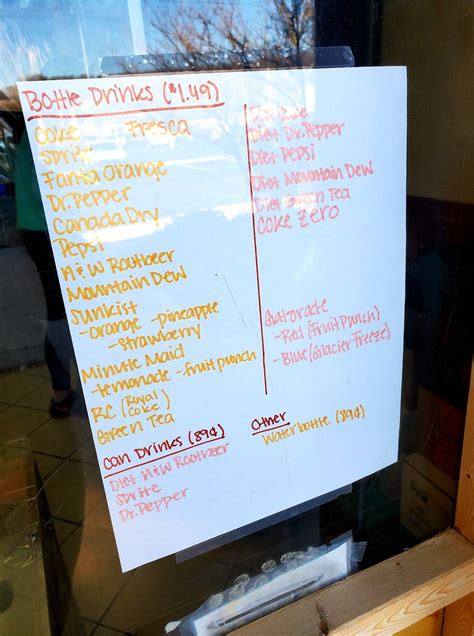 Bottle Drinks ($1.49)
Coke Fresca
Sprite
Fanta Orange
Dr. Pepper
Canada Dry
Pepsi
A&W Rootbeer
Mountain Dew
Sunkist
-orange -pineapple
-strawberry
Minute Maid
-lemonade -fruit punch
RC (Royal Coke)
Green Tea
Diet Coke
Diet Dr. Pepper
Diet Pepsi
Diet Mountain Dew
Diet Green Tea
Coke Zero
Gatorade
- Red (Fruit Punch)
- Blue (Glacier Freeze)
Can Drinks (89¢)
Diet A&W Rootbeer
Sprite
Dr. Pepper
Other
Water bottle (89¢)